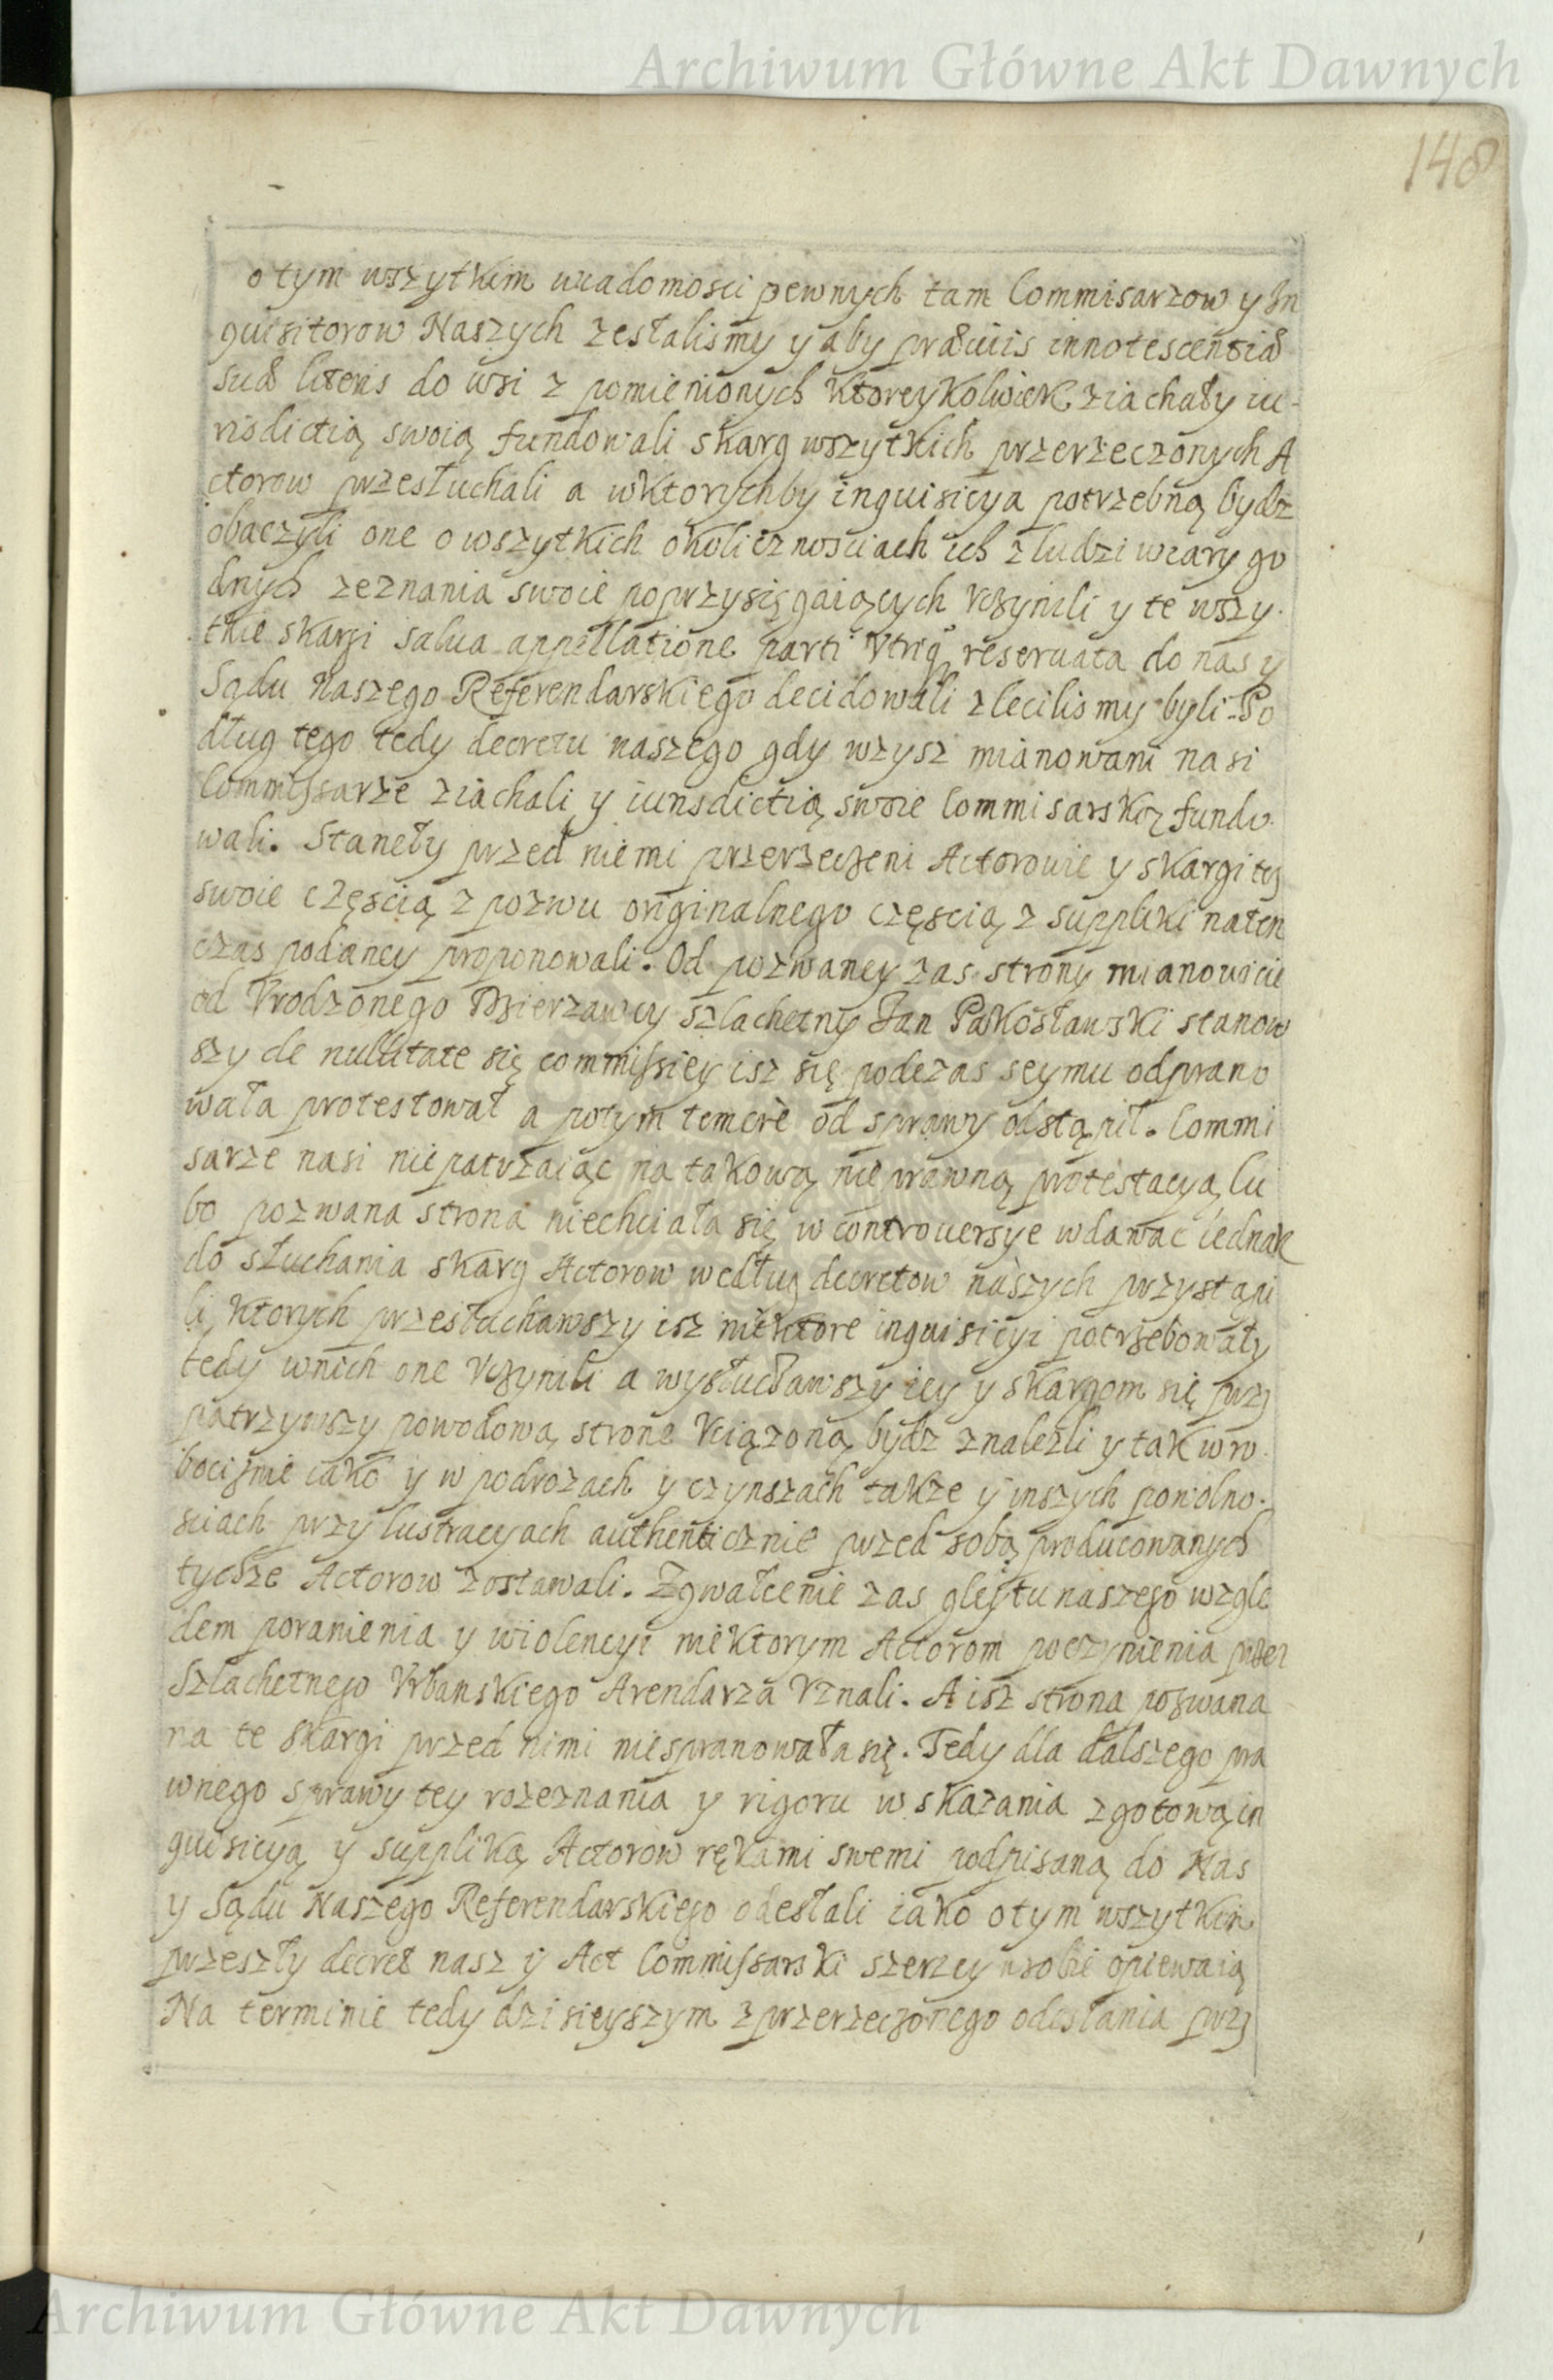 Archiwum Główne Akt Dawnych
148
o tym wszytkim wiadomosci pewnych tam Commisarzow y In
quisitorow Naszych zesłalismy y aby praeuiis innotescentiae
suae literis do wsi z pomienionych ktoreykolwiek ziachały iu-
risdictią swoią fundowali skarg wszytkich przerzeczonych A
ctorow przesłuchali a wktorychby inquisicya potrzebną bydz
obaczyli one o wszytkich okolicznosciach ich z ludzi wiary go
dnych zeznania swoie poprzysięgaiących vczynili y te wszy-
tkie skargi salua appellatione parti vtriq reseruata do nas y
Sądu Naszego Referendarskiego decidowali zlecilismy byli. Po
dług tego tedy decretu naszego gdy wzysz mianowani nasi
Commissarze ziachali y iurisdictią swoie Commisarską fundo-
wali. Staneły przed niemi przerzeczeni Actorowie y skargi tes
swoie częscią z pozwu originalnego częscią z suppliki naten
czas podaney proponowali. Od pozwaney zas strony mianowicie
od Vrodzonego Dzierzawcy szlachetny Jan Pakosławski stanow
szy de nullitate się commissiey isz się podczas seymu odprawo
wała protestował a potym temere od sprawy odstąpił. Commi
sarze nasi niepatrzaiąc na takową nie prawną protestacyą lu
bo pozwana strona niechciała się w controuersye wdawac iednak
do słuchania skarg Actorow według decretow naszych przystąpi
li, ktorych przesłuchawszy isz niektore inquisicyi potrzebowały
tedy wnich one vczynili a wysłuchawszy iey y skargom się przy
patrzywszy powodową strone vciązoną bydz znalezli y tak w ro-
bociznie iako y w podrozach y czynszach także y inszych powolno-
sciach przy lustracyach authenticznie przed sobą producowanych
tychze Actorow zostawali. Zgwałcenie zas gleytu naszego wzglę
dem poranienia y wiolencyi niektorym Actorom poczynienia przez
Szlachetnego Vrbanskiego Arendarza vznali. A isz strona pozwana
na te skargi przed nimi niesprawowała się. Tedy dla dalszego pra
wnego sprawy tey rozeznania y rigoru w skazania z gotową in
quisicyą y suppliką Actorow rękami swemi podpisaną do Nas
y Sądu Naszego Referendarskiego odesłali iako o tym wszytkim
przeszły decret nasz y Act Commissarski szerzey w sobie opiewaią
Na terminie tedy dzisieyszym z przerzeczonego odesłania przy
Archiwum Główne Akt Dawnych